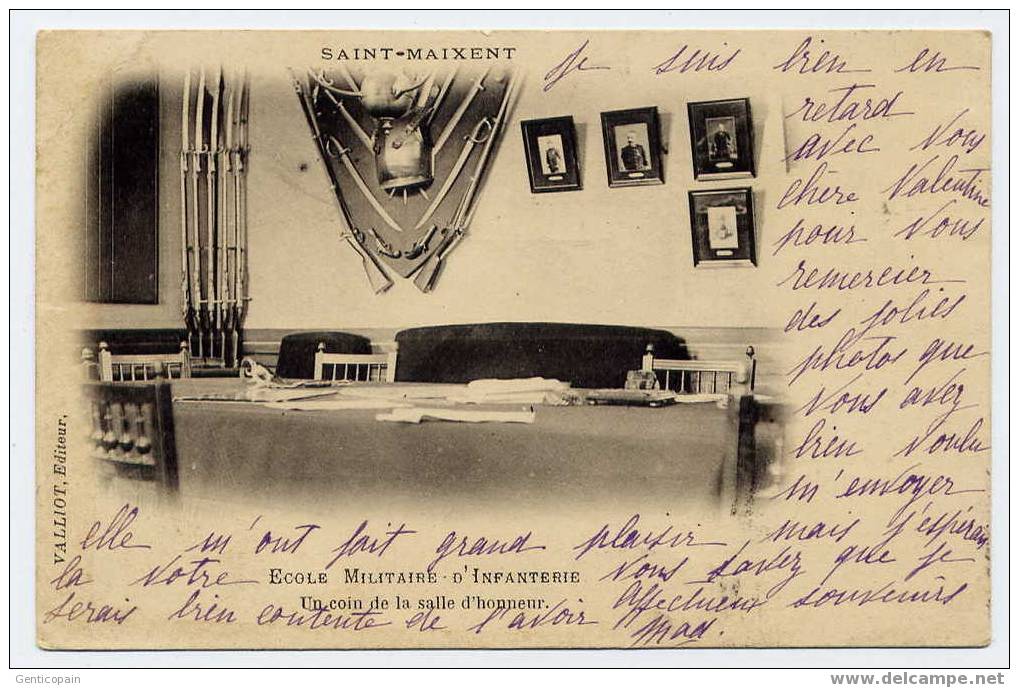 SAINT-MAIXENT
Je suis bien en
retard
avec vous
chère Valentine
pour vous
remercier
des jolies
photos que
vous avez
bien voulu
m'envoyer
elle m'ont fait grand plaisir mais j'espérais
la votre
ECOLE MILITAIRE D'INFANTERIE
vous savez que je
Un coin de la salle d'honneur.
serais bien contente de l'avoir
Affectueux souvenirs
Mad.
VALLIOT, Editeur,
Genticopain
www.delcampe.net